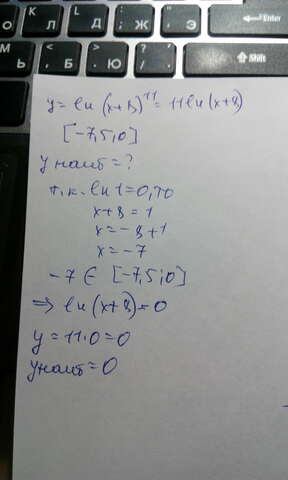 О Л Д Ж Э
Ь Б Ю . Shift
y = ln (x+8)¹¹ = 11 ln(x+8)
[-7,5;0]
y наиб = ?
т.к. ln 1 = 0, то
x+8 = 1
x = -8+1
x = -7
-7 ∈ [-7,5;0]
=> ln (x+8) = 0
y = 11·0 = 0
y наиб = 0